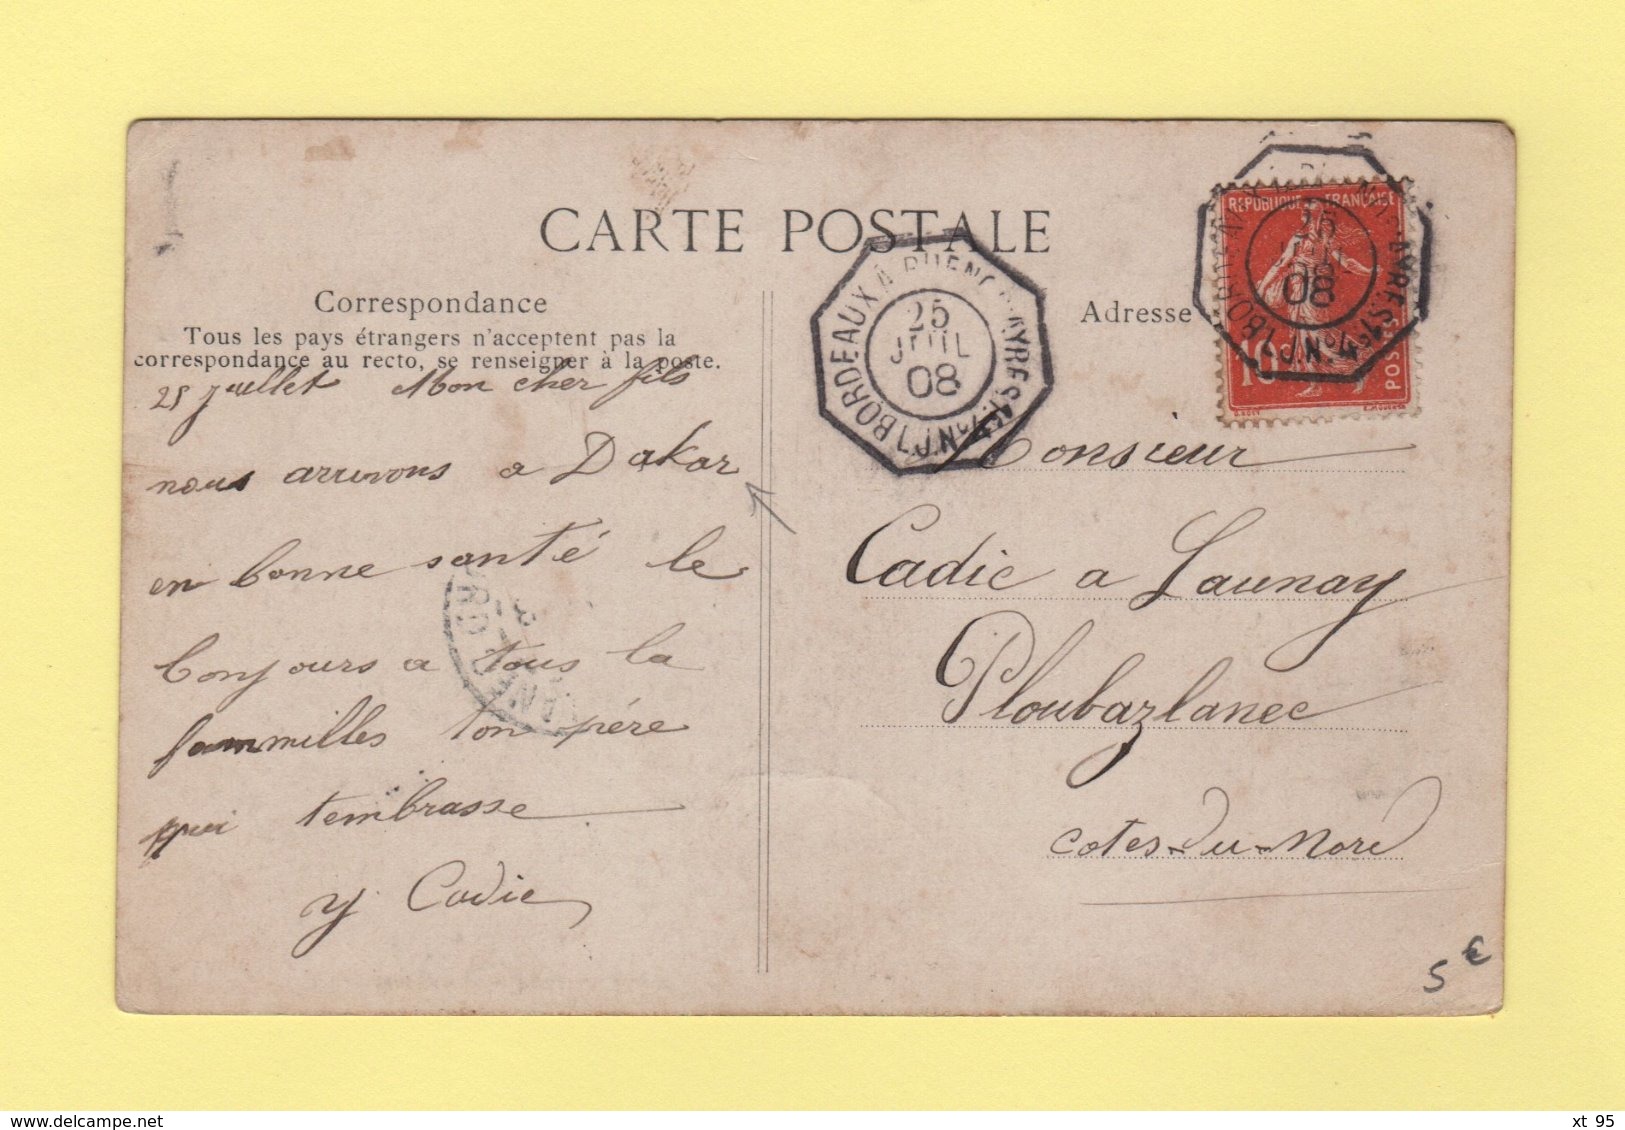 CARTE POSTALE
Correspondance
Tous les pays étrangers n'acceptent pas la
correspondance au recto, se renseigner à la poste.
25 juillet Mon cher fils
nous arrivons a Dakar
en bonne santé le
bonjours a tous la
fammilles ton père
qui tembrasse
Y Cadic
BORDEAUX A BUENOS-AYRES
25
JUIL
08
L.J. N
Adresse
REPUBLIQUE FRANÇAISE
10
POSTES
BORDEAUX
AYRES
08
Monsieur
Cadic a Launay
Ploubazlanec
Cotes-du-Nord
5 €
www.delcampe.net
xt 95